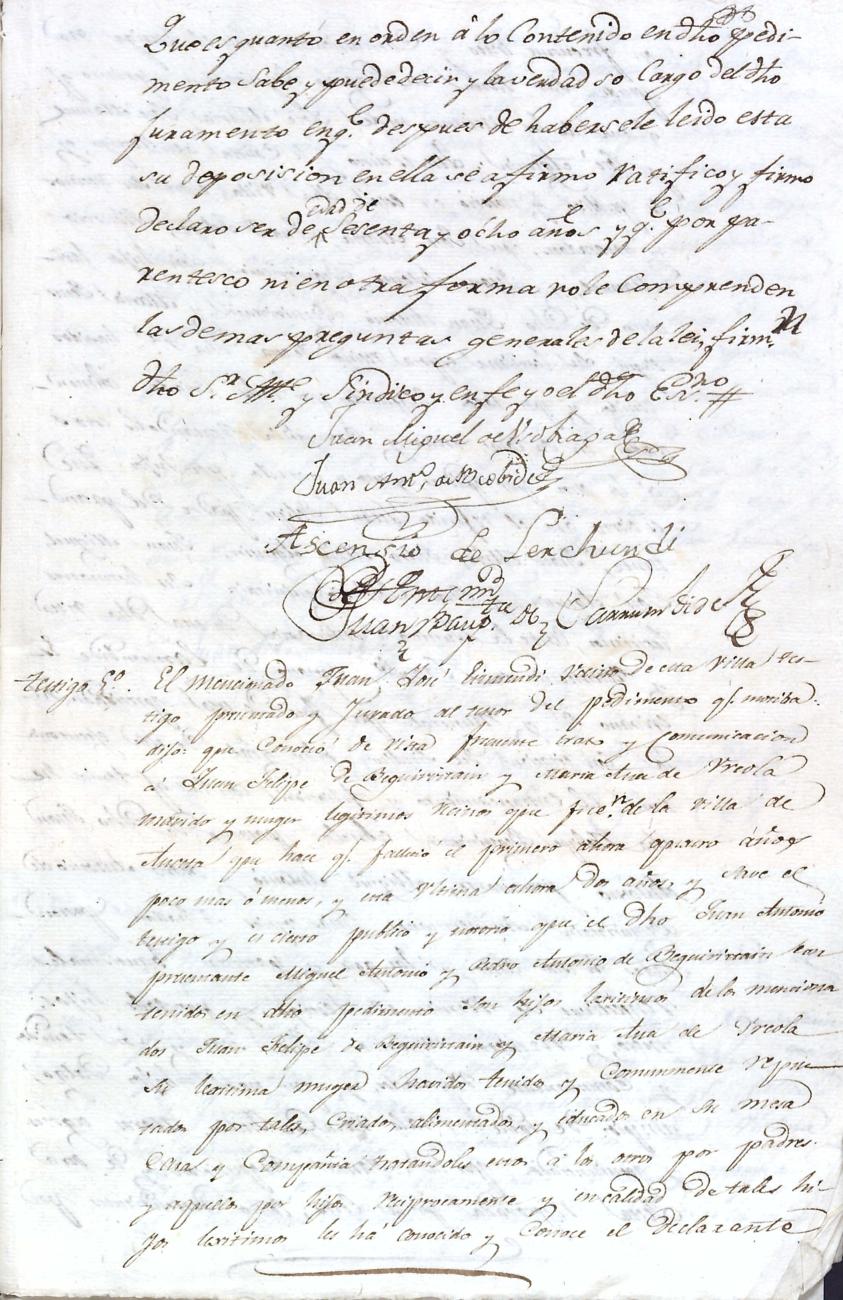 Que es quanto en orden â lo Contenido en dho pedi-
mento Sabe, y puede decir y la verdad so Cargo del dho
juramento en q.e despues de habersele leido esta
su deposision en ella se afirmo ratifico y firmo
declaro ser de edad de Sesenta y ocho años y q.e por pa-
rentesco ni en otra forma no le Comprenden
las demas preguntas generales de la lei, firm.n
dho S.r Alc.e y Sindico y en fe yo el dho Es.no #
Juan Miguel de
Juan Ant.o de
Ascensio de Lerchundi
Ante mi
Juan Baup.ta de Larrumbide
testigo 5.o. El mencionado Juan José Eizmendi Vecino de esta Villa tes-
tigo presentado y Jurado al tenor del pedimento q.e motiba
dijo: que Conoció de vista frequente trato y Comunicacion
a Juan Felipe de Beguiristain y Maria Ana de Vreola
marido y muger legitimos Vecinos que fue.n de la villa de
que hace q.e fallecio el primero ahora quatro años
poco mas ó menos, y esta vltima ahora dos años, y save el
testigo y es cierto publico y notorio que el dho Juan Antonio
presentante Miguel Antonio y Pedro Antonio de Beguiristain con
tenidos en dho pedimento son hijos lexitimos de los menciona
dos Juan Felipe de Beguiristain y Maria Ana de Vreola
su lexitima muger havidos tenidos y Comunmente repu
tados por tales, Criados, alimentados, y educados en su mesa
Casa y Compañia tratandoles estos á los otros por padres
y aquellos por hijos reciprocamente y en calidad de tales hi-
jos lexitimos les há conocido y Conoce el Declarante